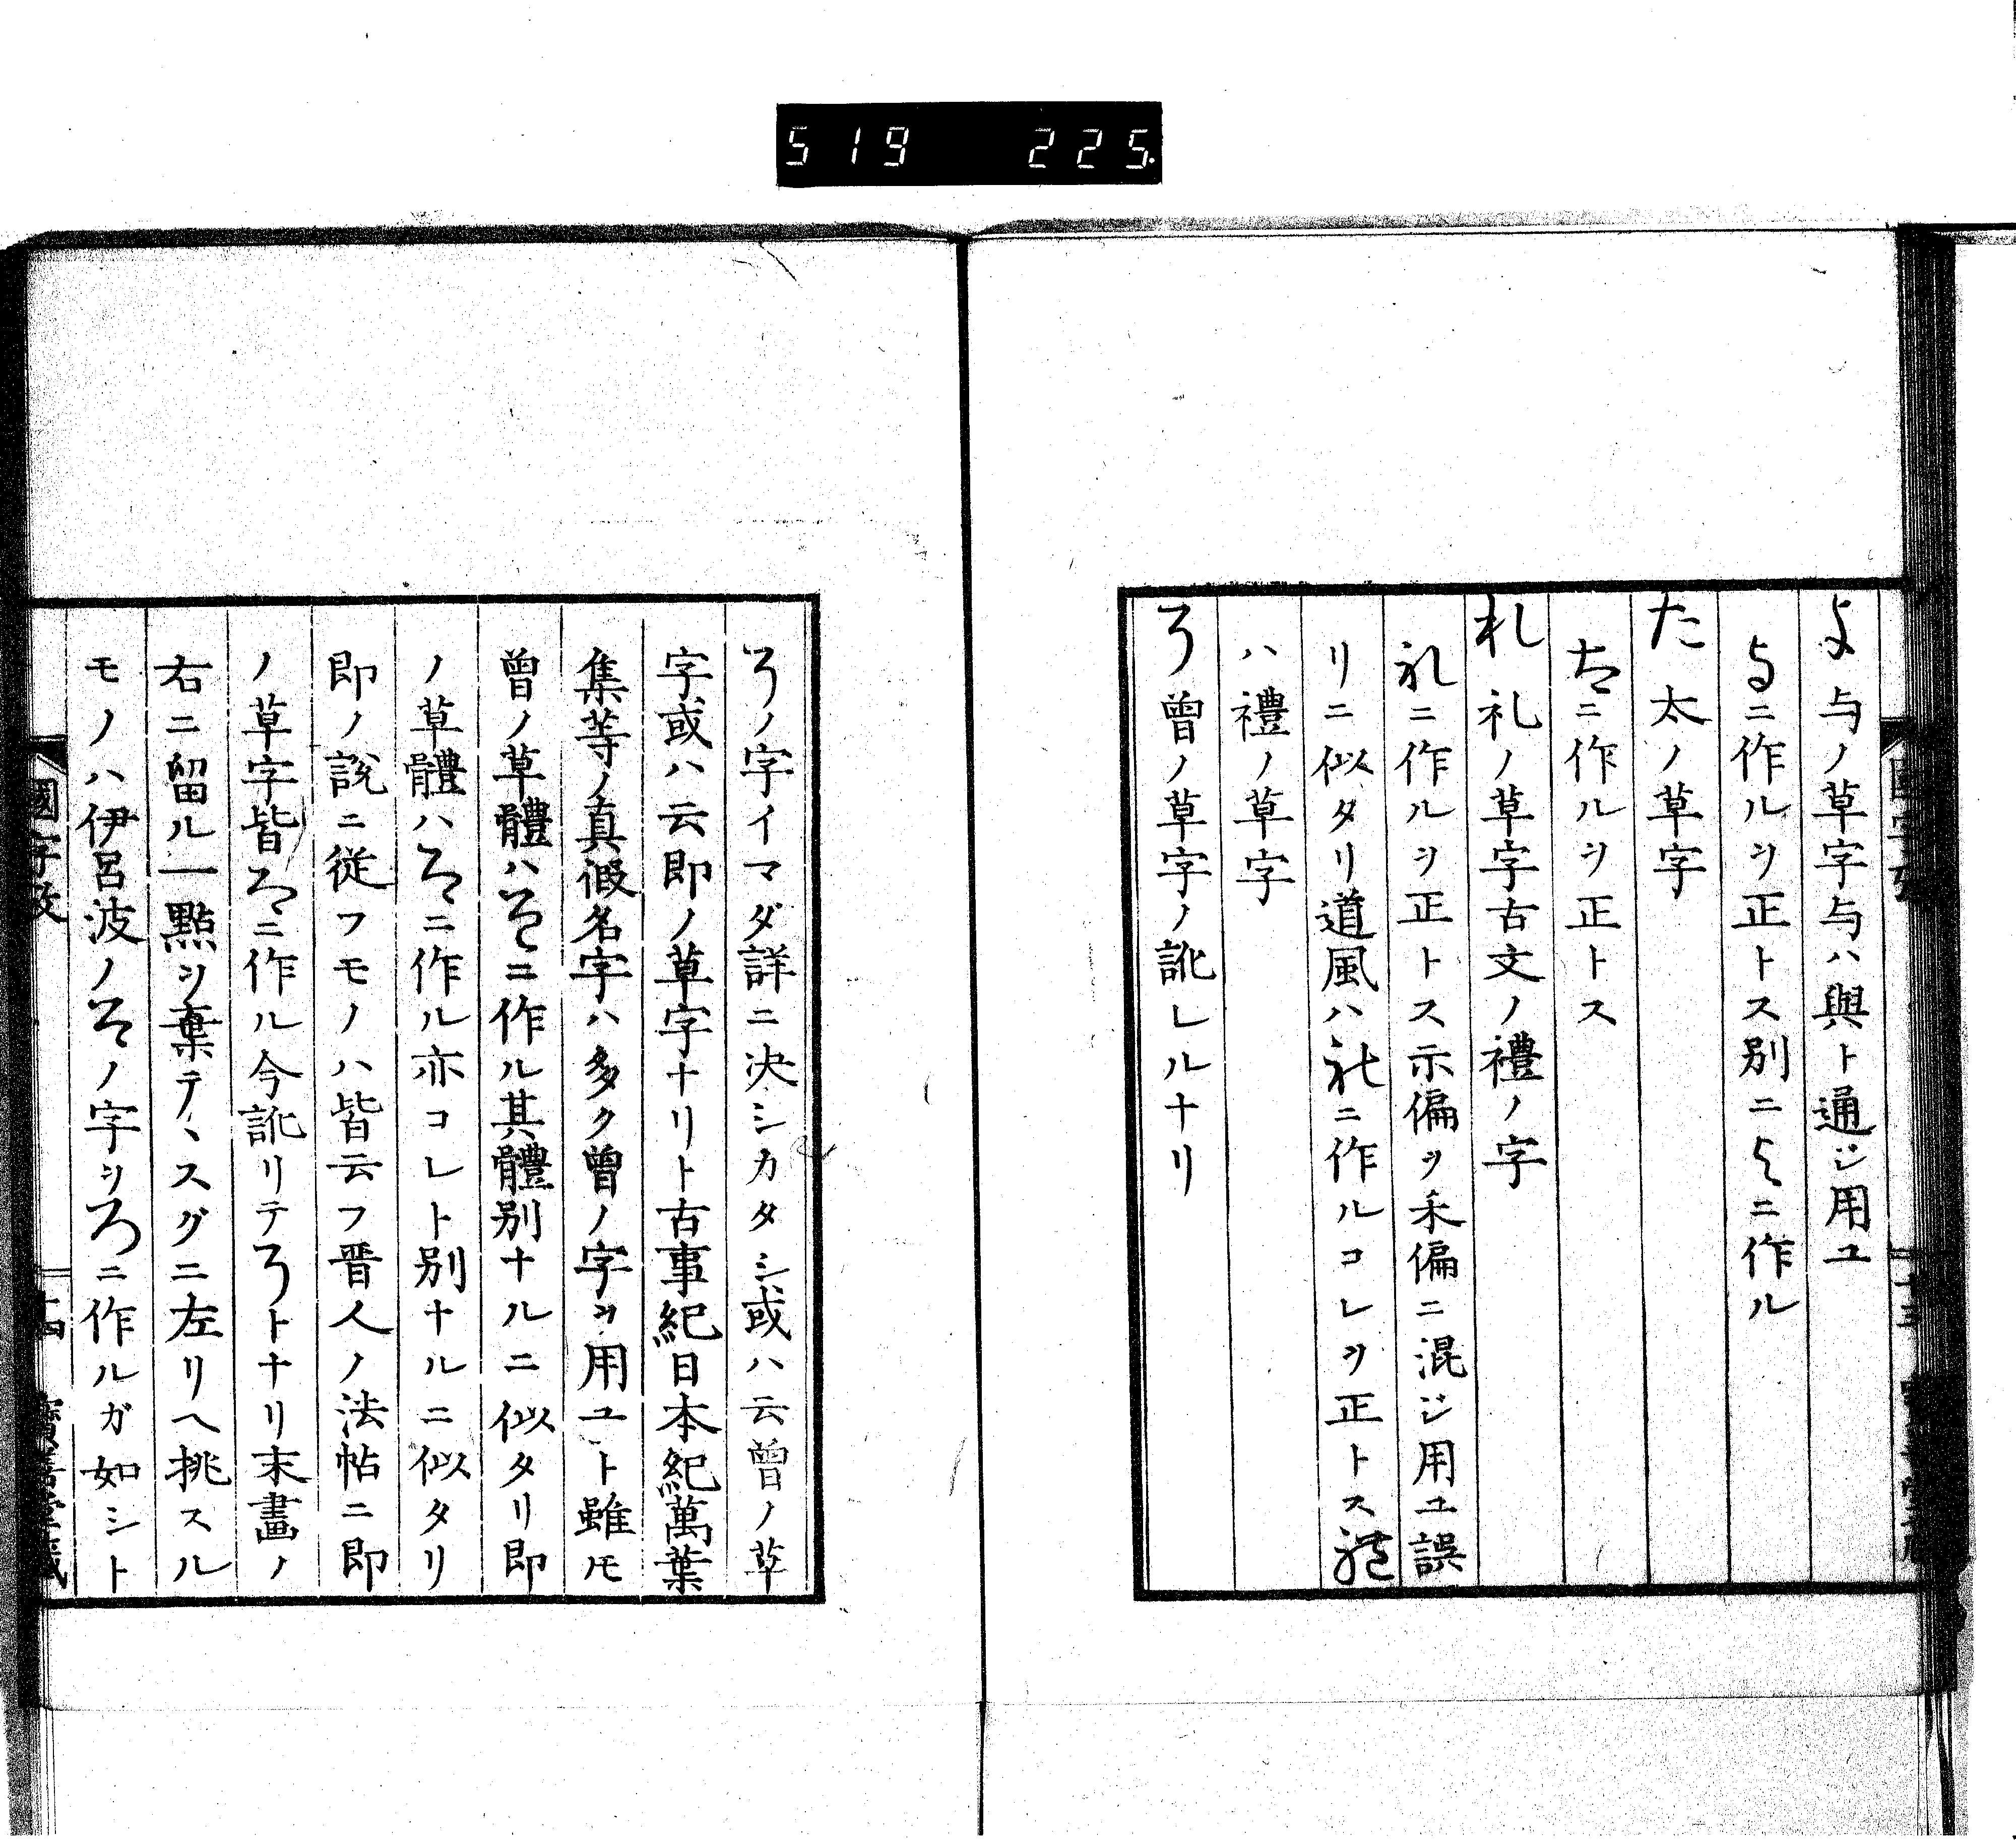 519 225
よ 与ノ草字与ハ與ト通ジ用ユ
ニ作ルヲ正トス別ニニ作ル
た 太ノ草字
ニ作ルヲ正トス
れ 礼ノ草字古文ノ禮ノ字
礼ニ作ルヲ正トス示偏ヲ禾偏ニ混ジ用ユ誤
リニ似タリ道風ハニ作ルコレヲ正トス
ハ禮ノ草字
そ 曽ノ草字ノ訛レルナリ
そノ字イマダ詳ニ决シカタシ或ハ云曽ノ草
字或ハ云即ノ草字ナリト古事紀日本紀萬葉
集等ノ真假名字ハ多ク曽ノ字ヲ用ユト雖モ
曽ノ草體ハニ作ル其體別ナルニ似タリ即
ノ草體ハニ作ル亦コレト別ナルニ似タリ
即ノ説ニ從フモノハ皆云フ晋人ノ法帖ニ即
ノ草字皆ニ作ル今訛リテそトナリ末畫ノ
右ニ留ル一點ヲ棄テヽスグニ左リヘ挑スル
モノハ伊呂波ノろノ字ヲろニ作ルガ如シト
國字攷 十四